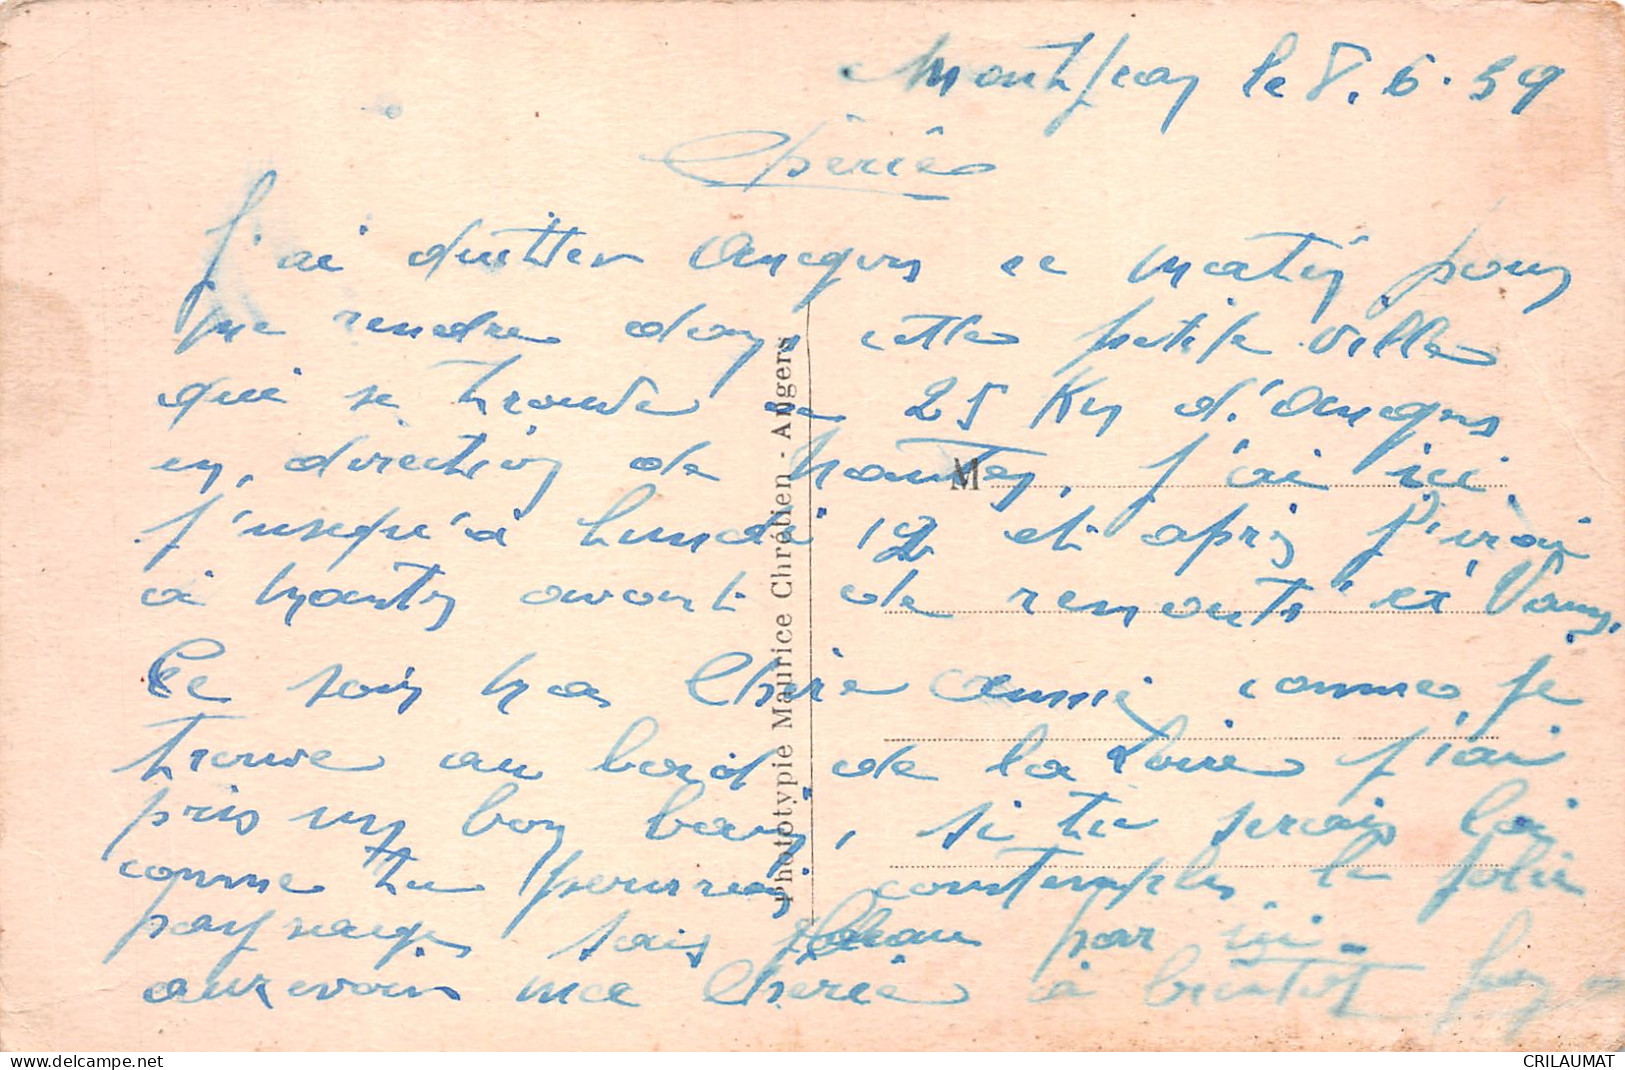 Montjean le 8.6.39
Chérie
J'ai quitter Angers ce matin pour
me rendre dans cette petite ville
qui se trouve a 25 Km d'Angers
en direction de Nantes, J'ai ici
J'usqu'à lundi 12 et après J'irai
à Nantes avant de remonter
Ce soir ma Chérie comme je
trouve au bord de la Loire J'ai
pris un bon bain, si tu serais là
comme tu pourrais contempler le jolie
paysage sais beau par ici.
aurevoir ma Chérie à bientôt
Phototypie Maurice Chrétien - Angers
M
www.delcampe.net
CRILAUMAT